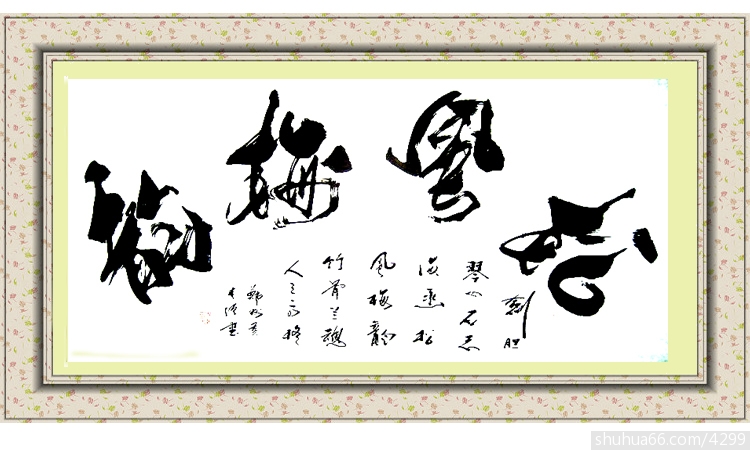 松風梅韵
劍胆
琴心石志
海量松
風梅韻
竹骨兰魂
人之高格
shuhua66.com/4299